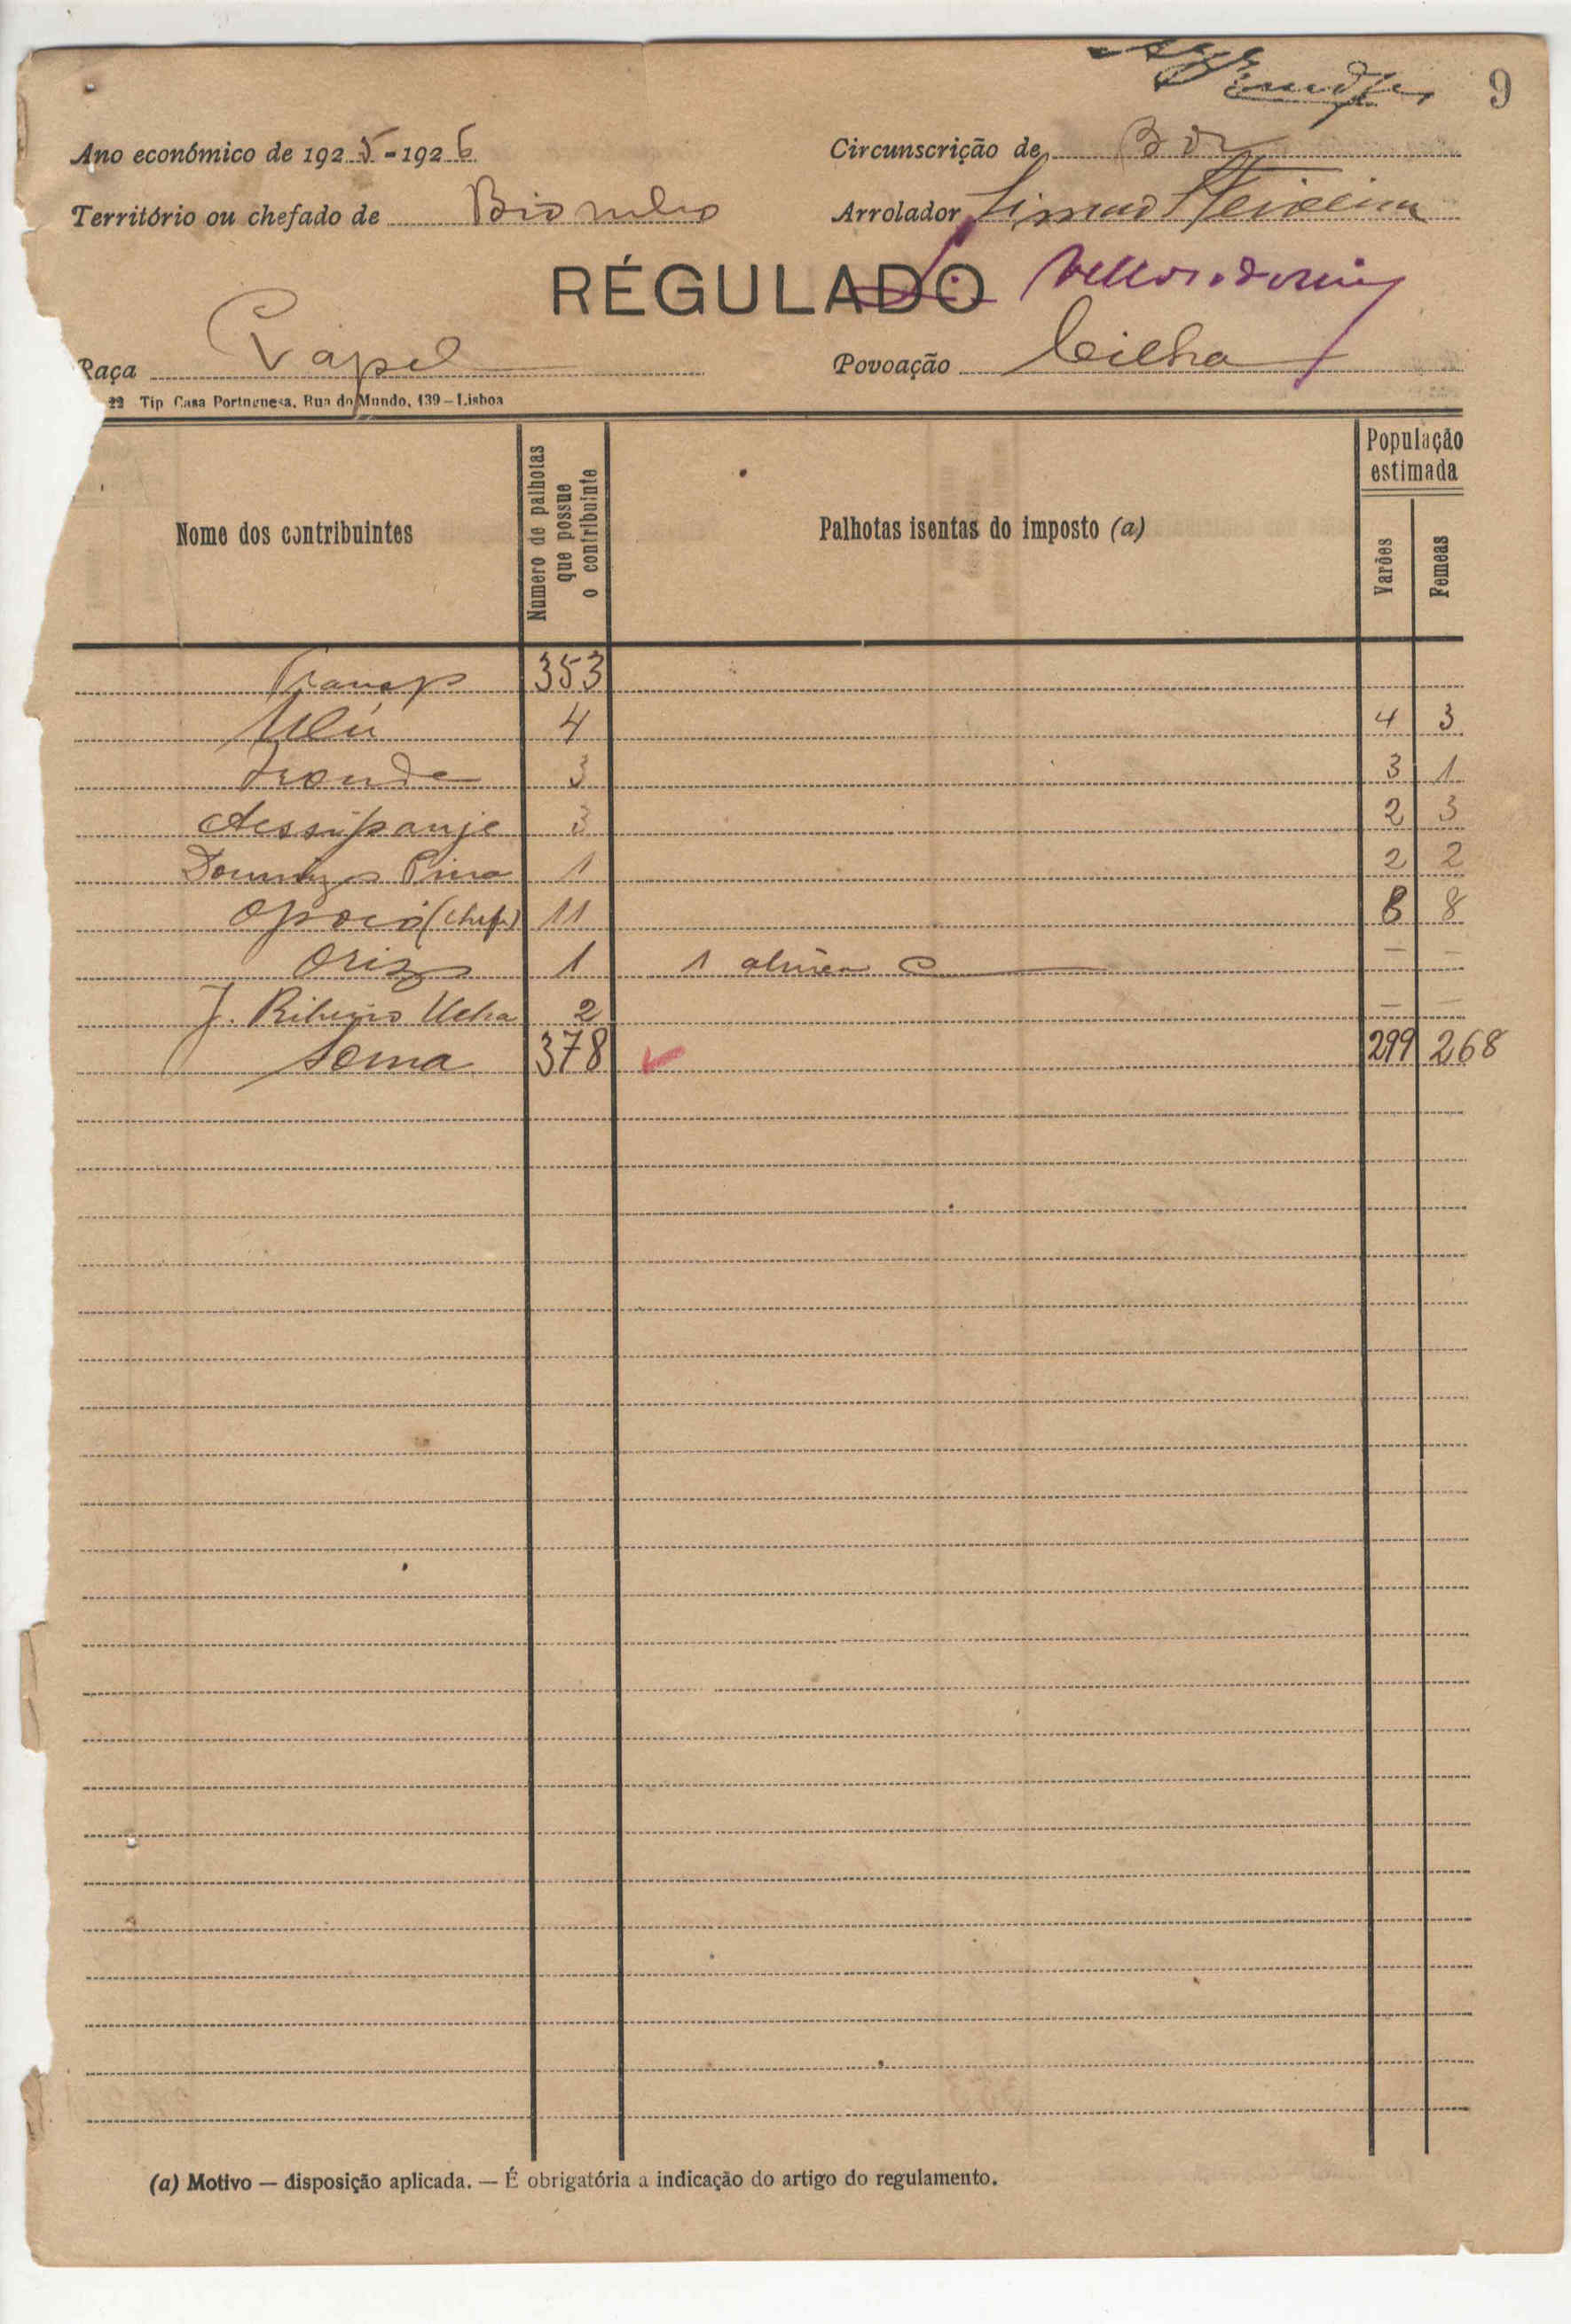 9
Ano económico de 1925-1926
Circunscrição de Bor
Território ou chefado de Biombo
Arrolador Simão Teixeira
RÉGULADO
Raça Papel
Povoação Cilha
22 Tip Casa Portuguesa, Rua do Mundo, 139-Lisboa
Nome dos contribuintes
Numero de palhotas que possue o contribuinte
Palhotas isentas do imposto (a)
População estimada
Varões
Femeas
Transp 353
4 4 3
3 3 1
3 2 3
Domingos Pina 1 2 2
(chefe) 11 8 8
1 1 alinea C — —
J. Ribeiro 2 — —
Soma 378 299 268
(a) Motivo — disposição aplicada. — É obrigatória a indicação do artigo do regulamento.